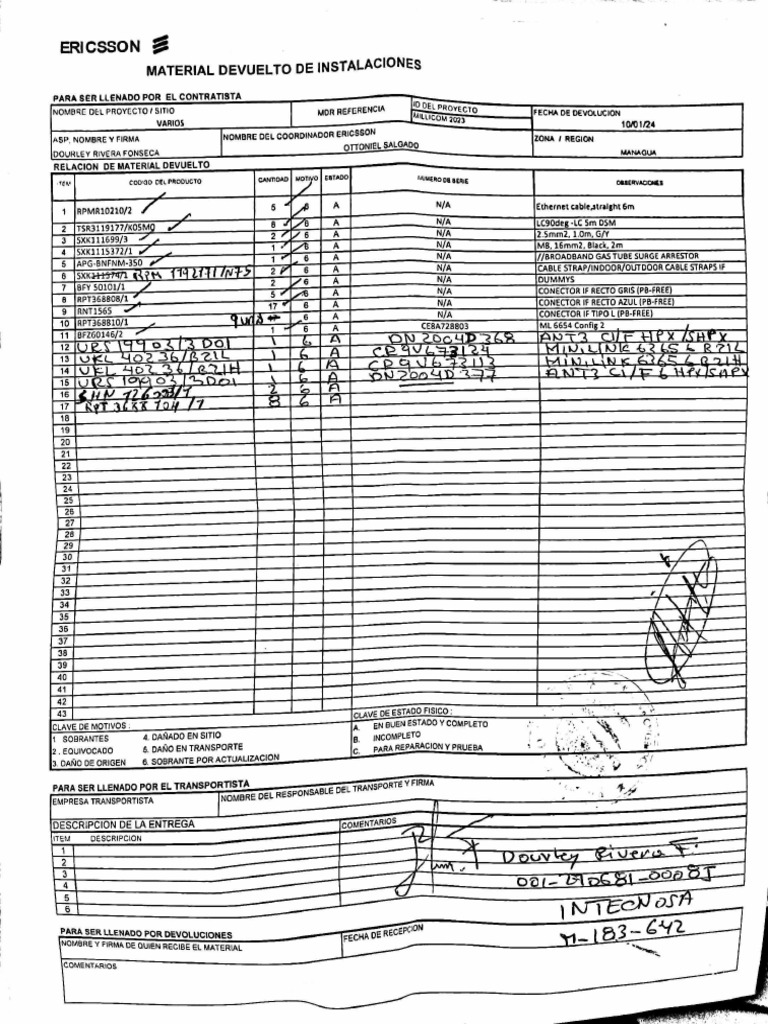 ERICSSON
MATERIAL DEVUELTO DE INSTALACIONES
PARA SER LLENADO POR EL CONTRATISTA
NOMBRE DEL PROYECTO / SITIO MDR REFERENCIA ID DEL PROYECTO FECHA DE DEVOLUCION
VARIOS MILLICOM 2023 10/01/24
ASP, NOMBRE Y FIRMA NOMBRE DEL COORDINADOR ERICSSON ZONA / REGION
DOURLEY RIVERA FONSECA OTTONIEL SALGADO MANAGUA
RELACION DE MATERIAL DEVUELTO
ITEM CODIGO DEL PRODUCTO CANTIDAD MOTIVO ESTADO NUMERO DE SERIE OBSERVACIONES
1 RPMR10210/2 5 6 A N/A Ethernet cable,straight 6m
2 TSR3119177/K05MQ 8 6 A N/A LC90deg -LC 5m DSM
3 SXK111699/3 2 6 A N/A 2.5mm2, 1.0m, G/Y
4 SXK1115372/1 1 6 A N/A M8, 16mm2, Black, 2m
5 APG-BNFNM-350 1 6 A N/A //BROADBAND GAS TUBE SURGE ARRESTOR
6 2 6 A N/A CABLE STRAP/INDOOR/OUTDOOR CABLE STRAPS IF
7 BFY 50101/1 2 6 A N/A DUMMYS
8 RPT368808/1 5 6 A N/A CONECTOR IF RECTO GRIS (PB-FREE)
9 RNT1565 17 6 A N/A CONECTOR IF RECTO AZUL (PB-FREE)
10 RPT368810/1 6 A N/A CONECTOR IF TIPO L (PB-FREE)
11 BFZ60146/2 1 6 A CE8A728803 ML 6654 Config 2
12 URS 19903/3D01 1 6 A DN2004D368 ANT3 C/F HPX/SHPX
13 UKL 40236/R21L 1 6 A CP9V673124 MINILINK 6365 6 R21L
14 UKL 40236/R21H 1 6 A CP9V673113 MINILINK 6365 6 R21H
15 URS 19903/3D01 1 6 A DN2004D377 ANT3 C/F 6 HPX/SHPX
16 2 6 A
17 RPT 3688 704/7 8 6 A
18
19
20
21
22
23
24
25
26
27
28
29
30
31
32
33
34
35
36
37
38
39
40
41
42
43
CLAVE DE MOTIVOS : CLAVE DE ESTADO FISICO :
1 SOBRANTES 4. DAÑADO EN SITIO A. EN BUEN ESTADO Y COMPLETO
2 . EQUIVOCADO 5. DAÑO EN TRANSPORTE B. INCOMPLETO
3. DAÑO DE ORIGEN 6. SOBRANTE POR ACTUALIZACION C. PARA REPARACION Y PRUEBA
PARA SER LLENADO POR EL TRANSPORTISTA
EMPRESA TRANSPORTISTA NOMBRE DEL RESPONSABLE DEL TRANSPORTE Y FIRMA
DESCRIPCION DE LA ENTREGA COMENTARIOS
ITEM DESCRIPCION
1
2
3
4
5
6
Dourley Rivera F.
001-290681-0008J
INTECNOSA
M-183-642
PARA SER LLENADO POR DEVOLUCIONES
NOMBRE Y FIRMA DE QUIEN RECIBE EL MATERIAL FECHA DE RECEPCION
COMENTARIOS